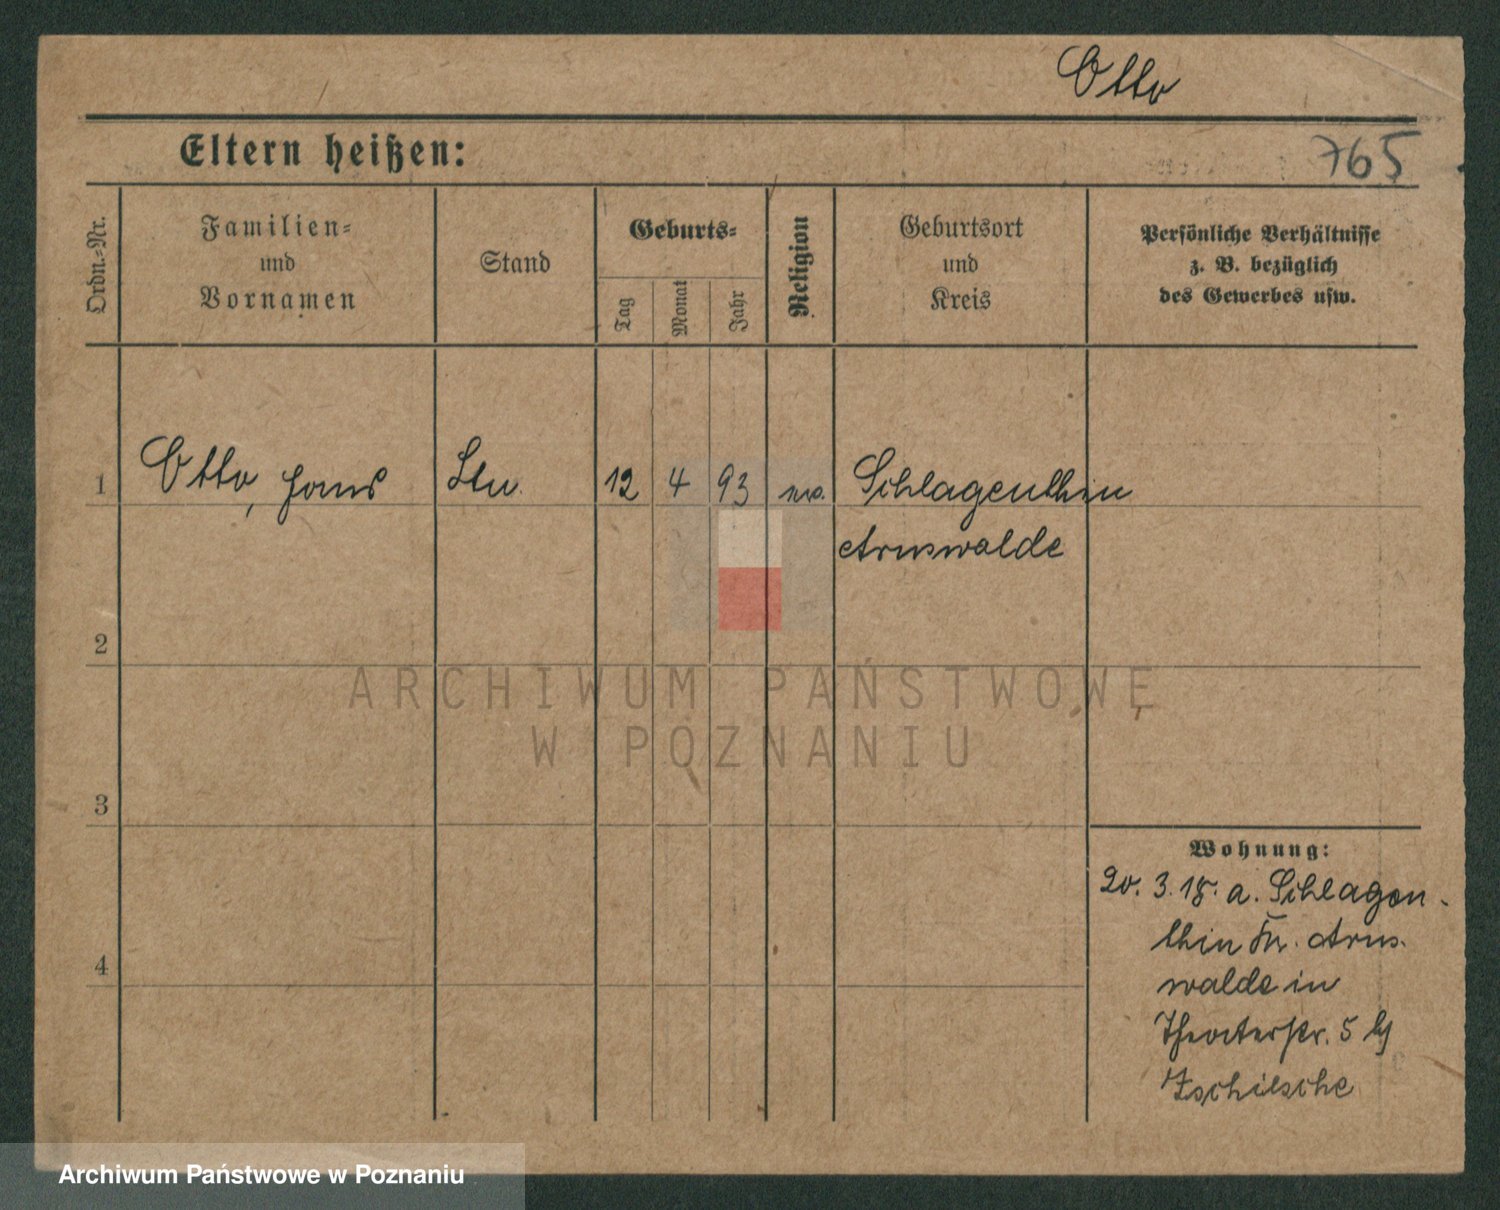 Otto
Eltern heißen:
765
Ordn.-Nr.
Familien-
und
Vornamen
Stand
Geburts-
Tag
Monat
Jahr
Religion
Geburtsort
und
Kreis
Persönliche Verhältnisse
z. B. bezüglich
des Gewerbes usw.
1
Otto, Hans
12
4
93
Schlagenthin
Arnswalde
2
ARCHIWUM PAŃSTWOWE
W POZNANIU
3
Wohnung:
20. 3. 18. a. Schlagen-
thin Kr. Arns-
walde in
Theaterstr. 5 bei
4
Archiwum Państwowe w Poznaniu